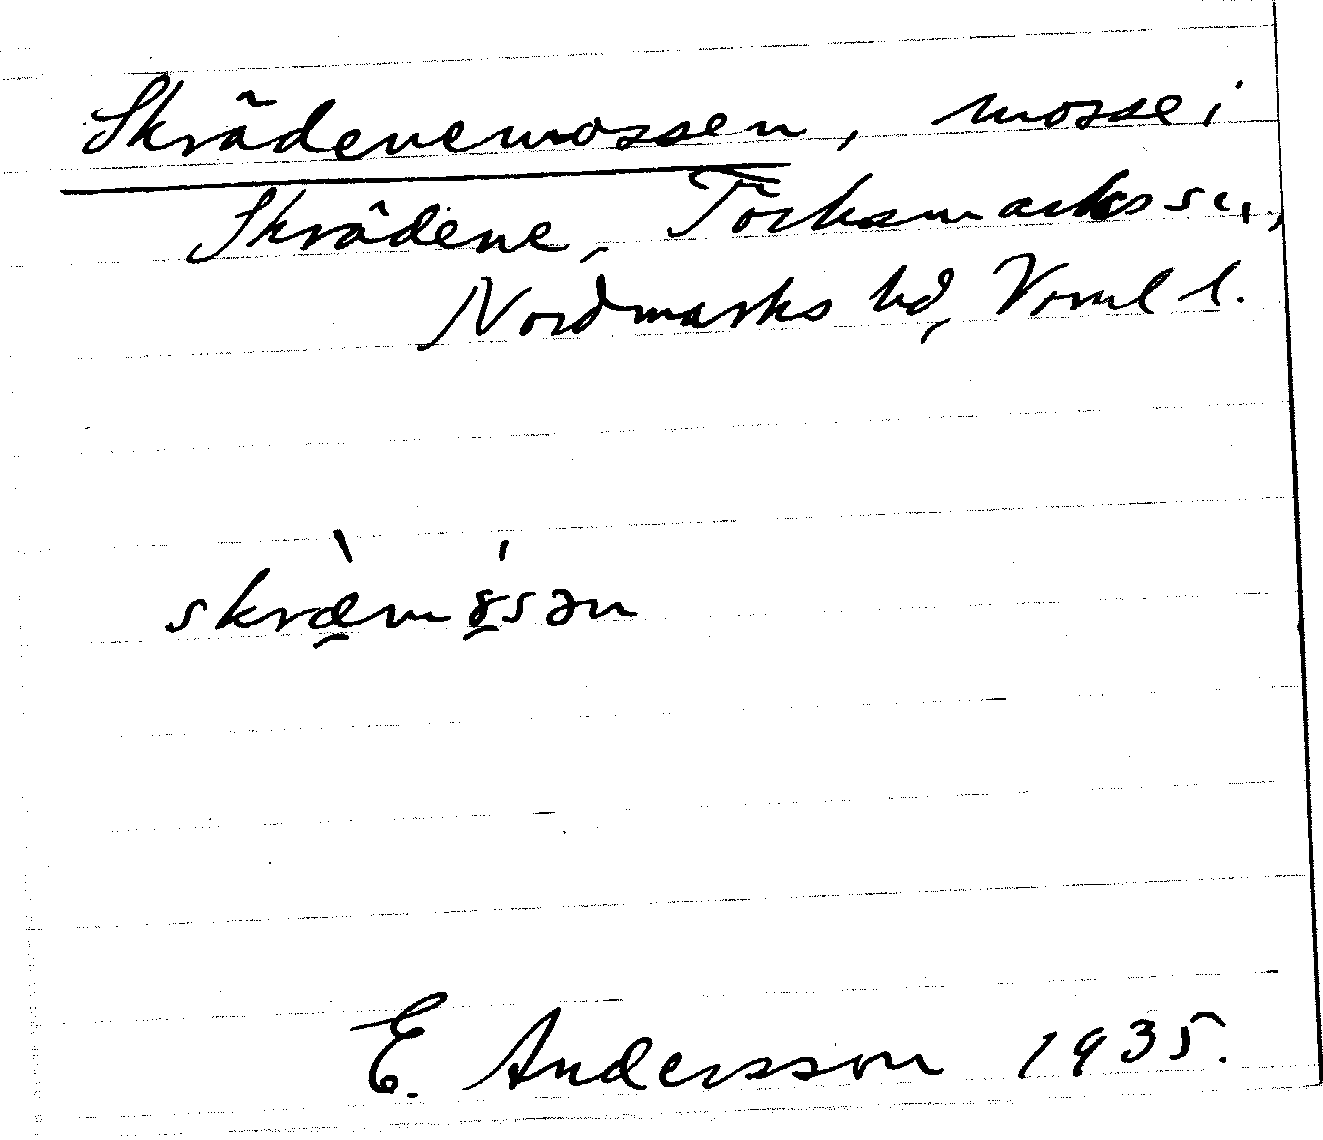 Skrädenemossen, mosse i
Skrädene, Töcksmarks sn,
Nordmarks hd, Vrml l.
skræ̀mósən
E. Andersson 1935.